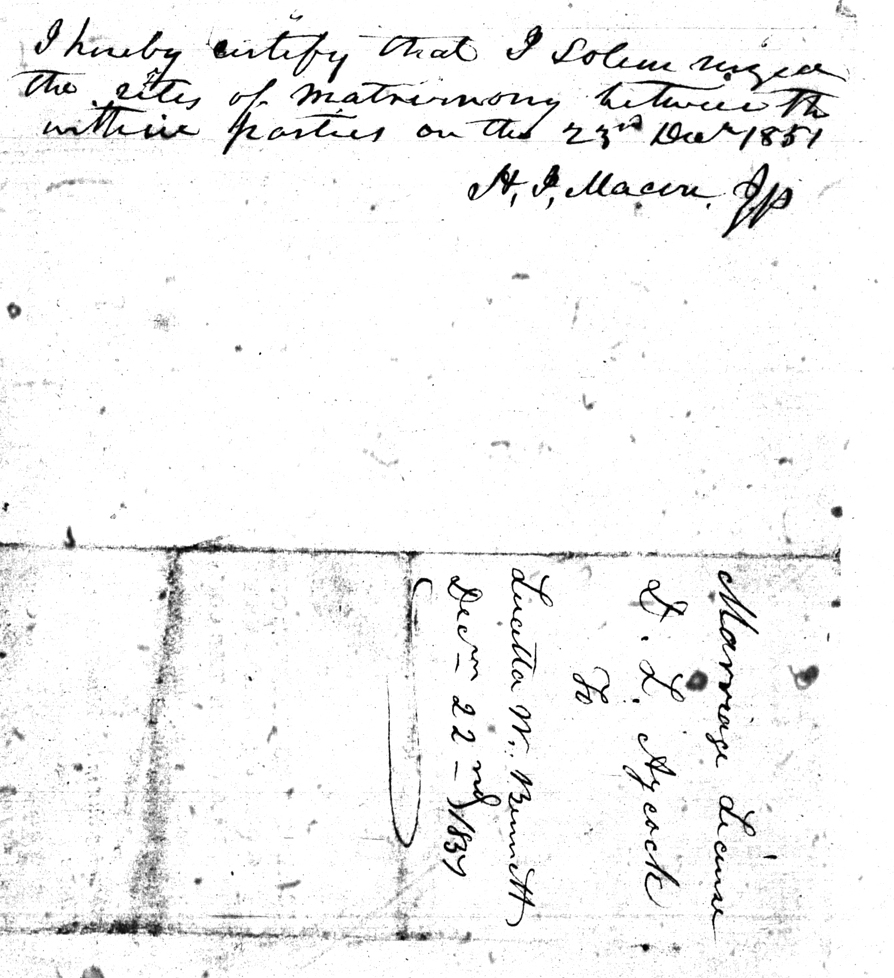 I hereby certify that I Solemnized
the rites of Matrimony between the
within parties on the 23rd Decr 1851
H, I, Macon. JP
Marriage License
D. L. Aycock
To
Luvella W. Bennett
Decm 22nd 1851